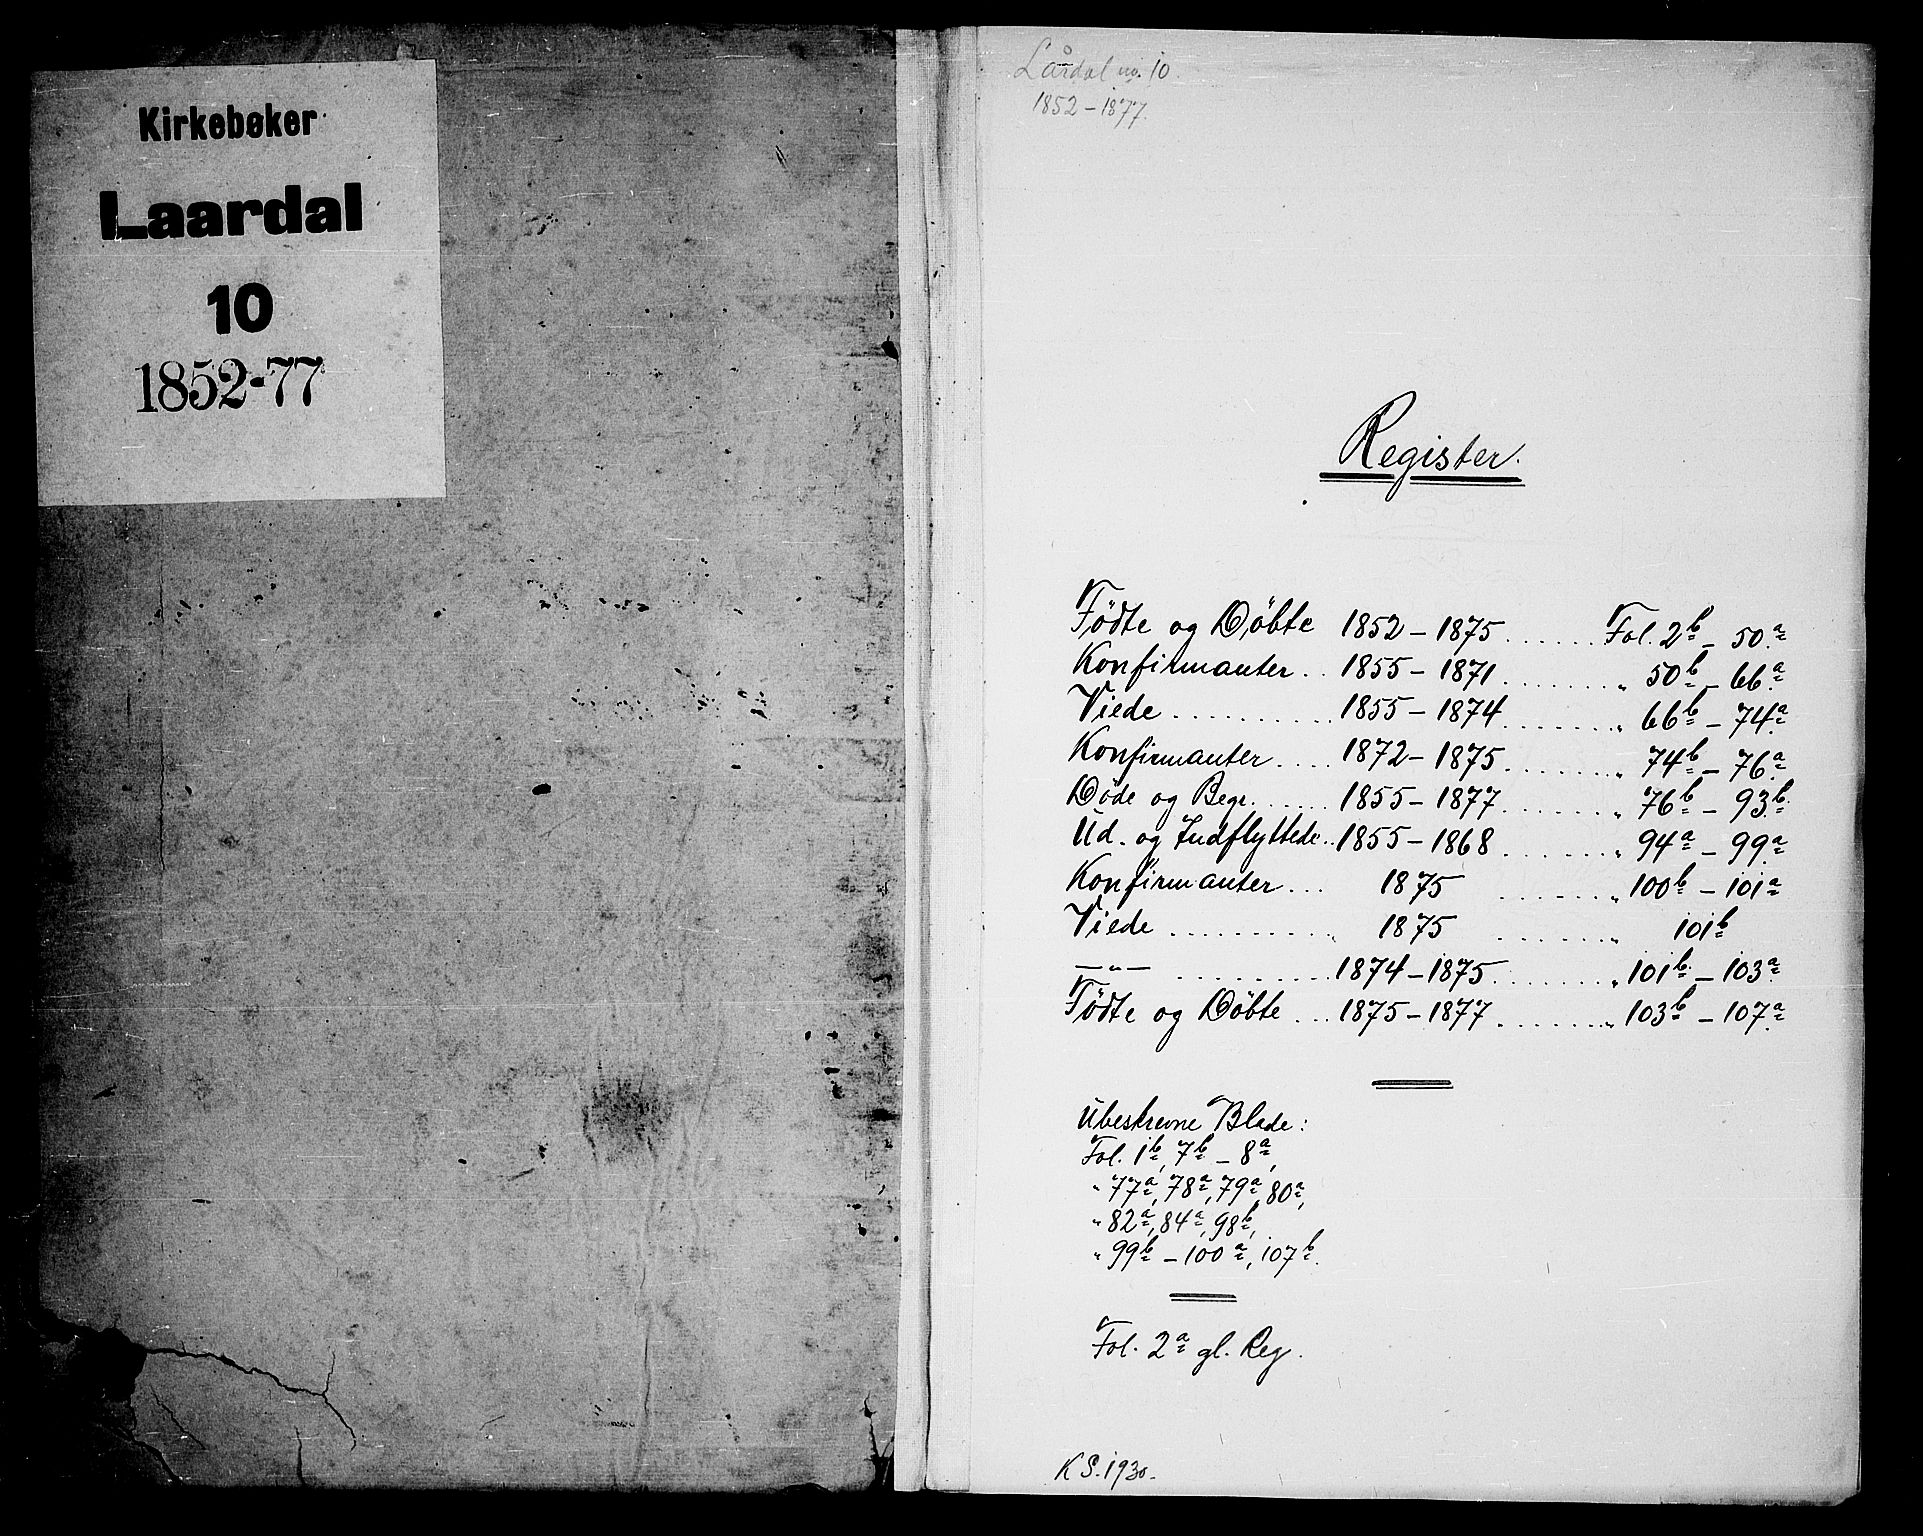 Kirkebøker
Laardal
10
1852-77
Lårdal nr. 10.
1852 – 1877.
Register.
Födte og Döbte 1852 – 1875 ...... Fol. 2b – 50a
Konfirmanter .. 1855 – 1871 ....... " 50b – 66a
Viede .......... 1855 – 1874 ....... " 66b – 74a
Konfirmanter .... 1872 – 1875 ....... " 74b – 76a
Döde og Begr. ...... 1855 – 1877 ....... " 76b – 93b
Ud. og Indflyttede .. 1855 – 1868 ....... " 94a – 99a
Konfirmanter ... 1875 ...... " 100b – 101a
Viede .......... 1875 ...... " 101b
— " — .......... 1874 – 1875 ....... " 101b – 103a
Födte og Döbte ... 1875 – 1877 ....... " 103b – 107a
Ubeskrevne Blade:
Fol. 1b, 7b – 8a,
" 77a, 78a, 79a, 80a,
" 82a, 84a, 98b,
" 99b – 100a, 107b.
Fol. 2a gl. Reg.
K S. 1930.